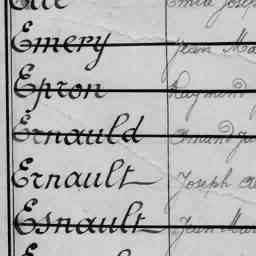 Emery Jean Ma
Epron Raymond
Ernauld Amand
Ernault Joseph
Esnault Jean Mar